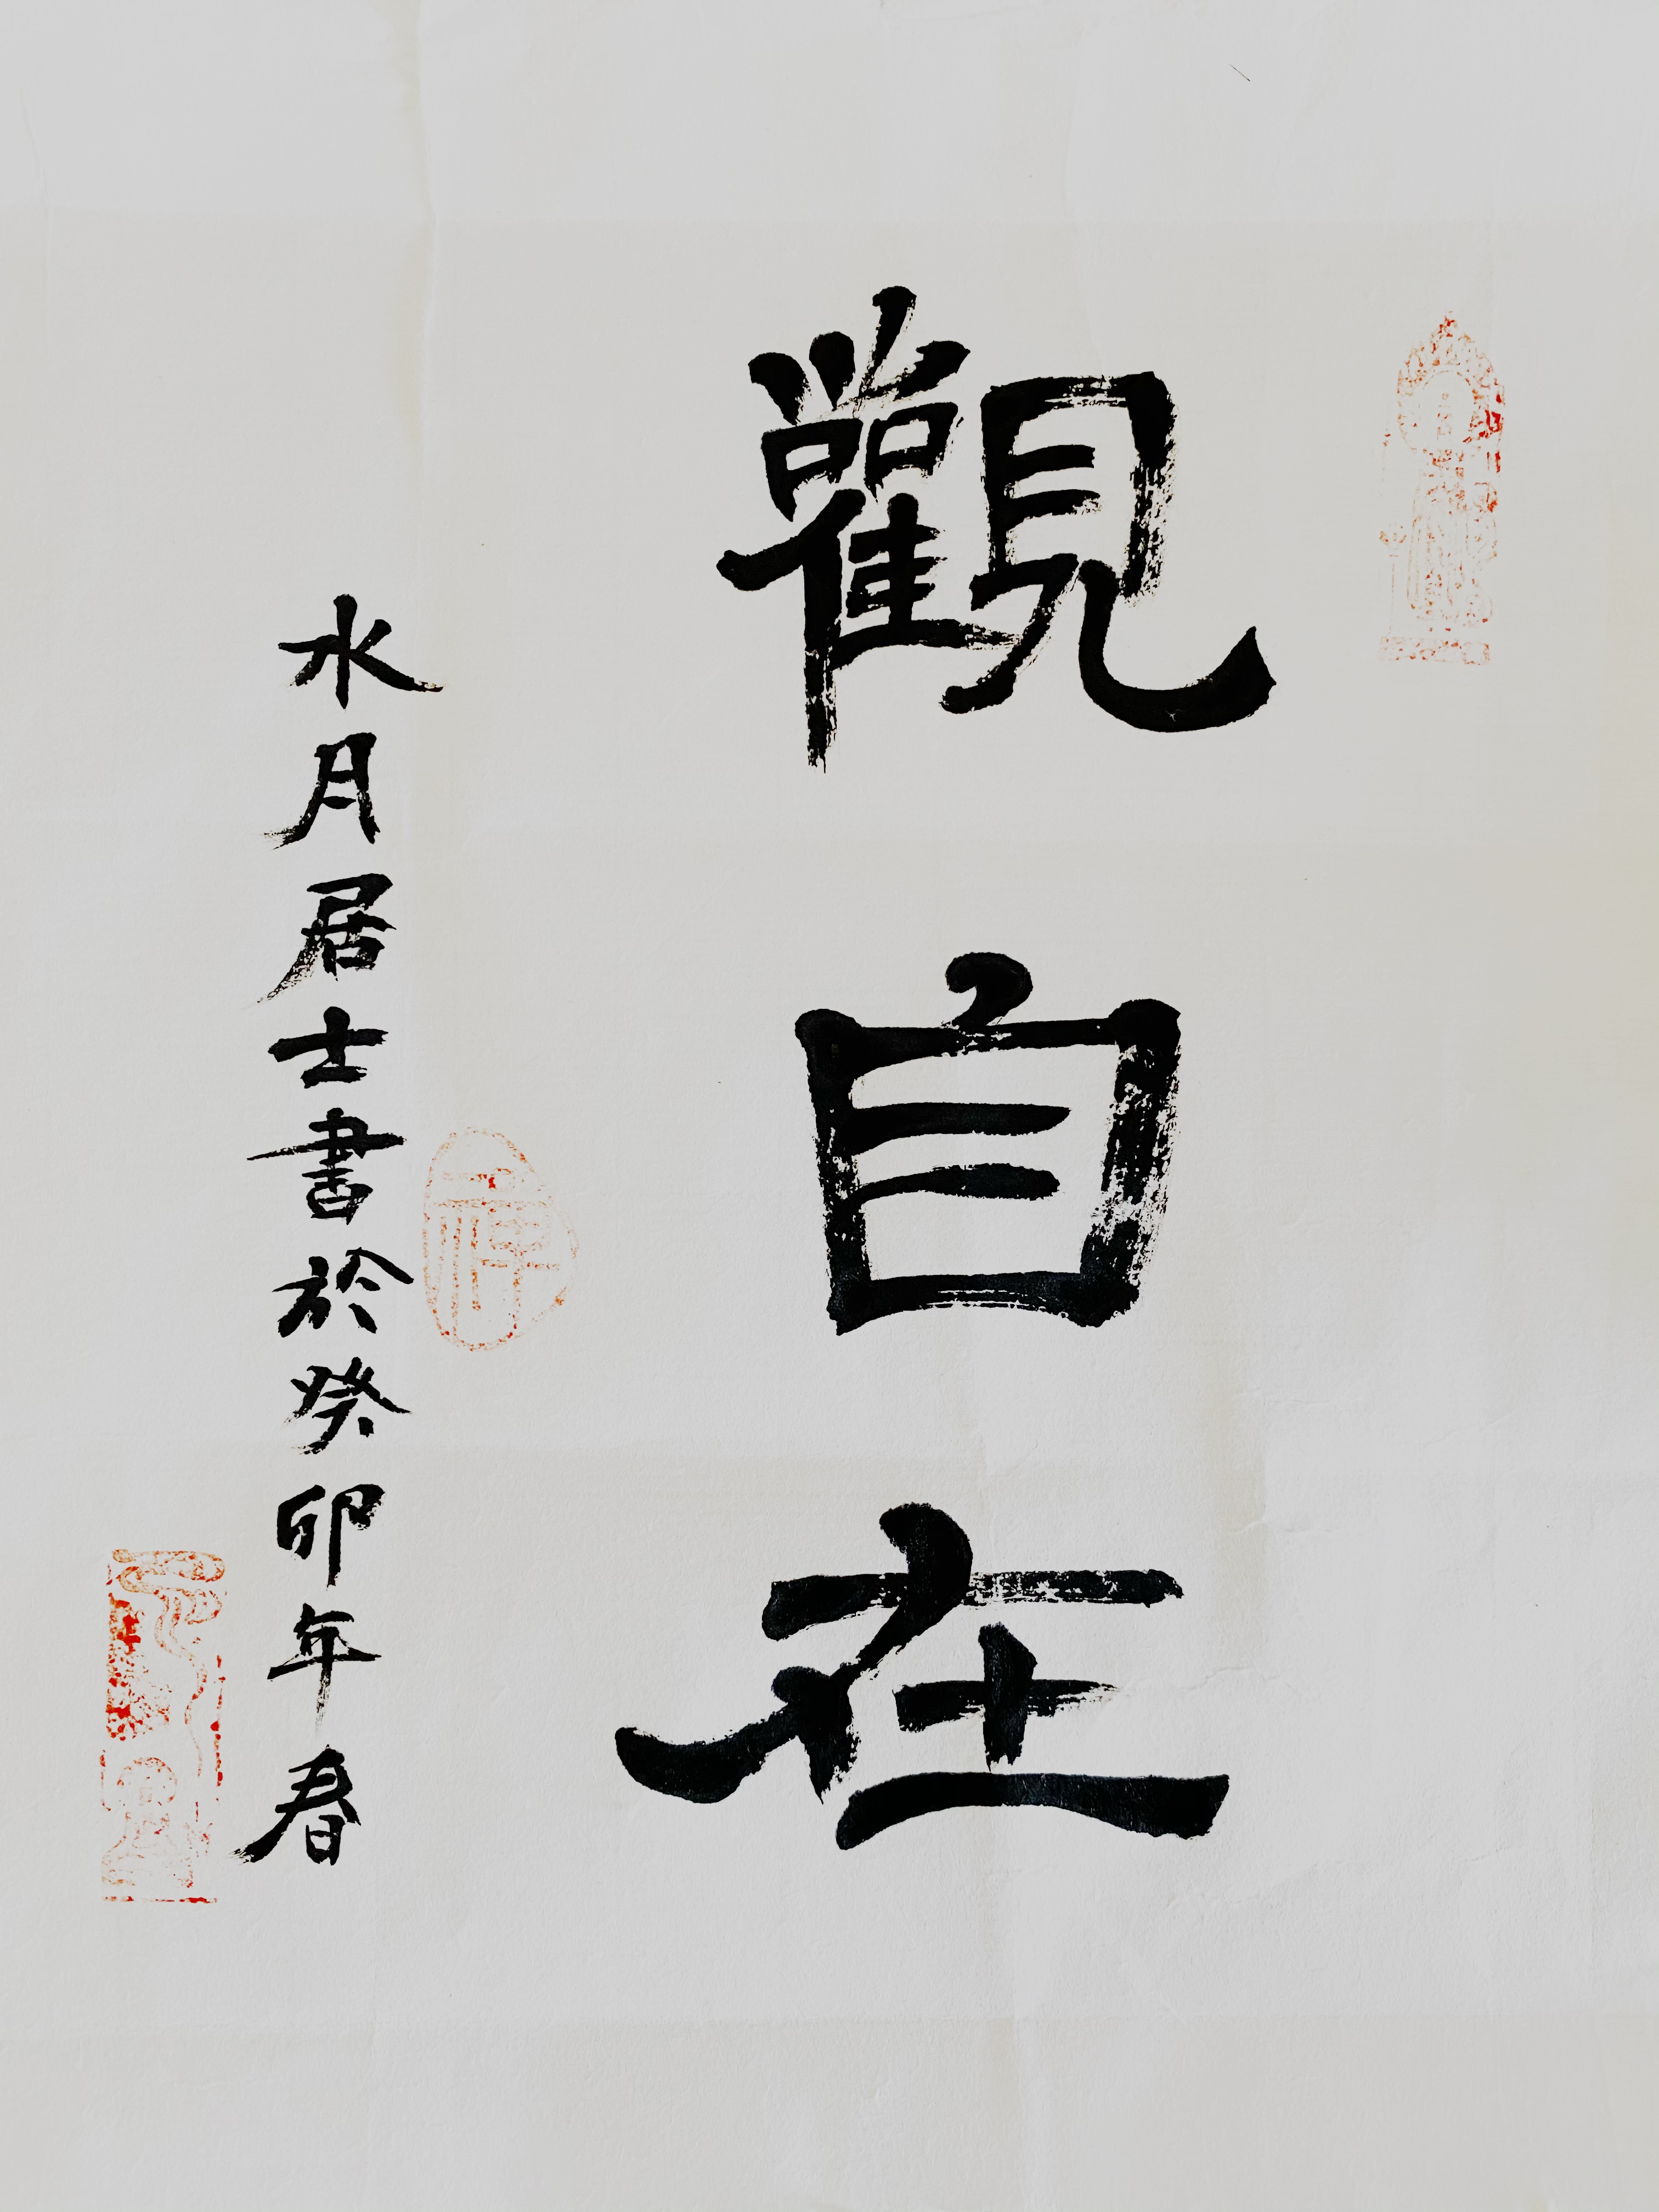 觀自在
水月居士書於癸卯年春